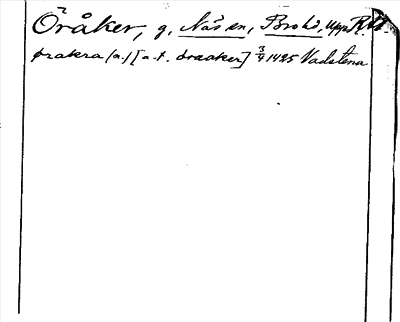 Öråker, g. Näs sn, Bro hd, Uppl. RA
ørakra (a.) [a.t. öraaker] 3/4 1425 Vadstena